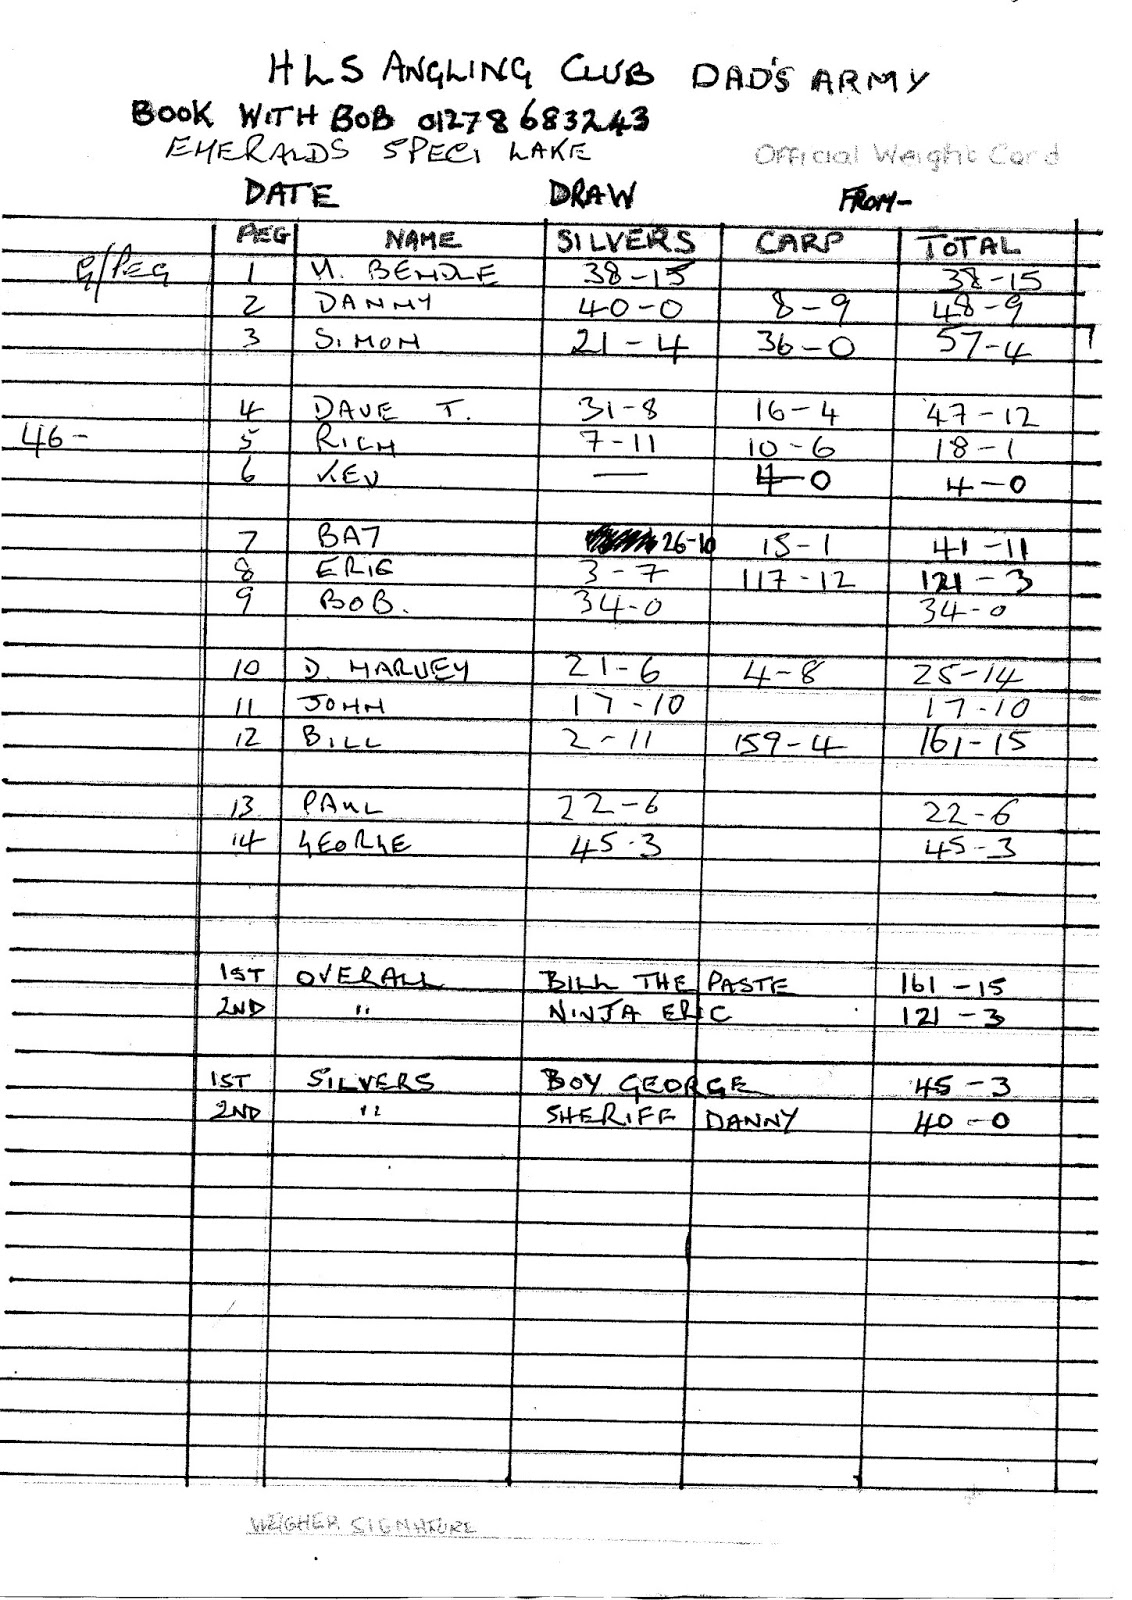 HLS ANGLING CLUB DAD'S ARMY
BOOK WITH BOB 01278 683243
EMERALDS SPECI LAKE Official Weight Card
DATE DRAW FROM-
PEG NAME SILVERS CARP TOTAL
G/PEG 1 M. BENDLE 38-15 38-15
2 DANNY 40-0 8-9 48-9
3 SIMON 21-4 36-0 57-4
4 DAVE T. 31-8 16-4 47-12
46- 5 RICH 7-11 10-6 18-1
6 KEV — 4-0 4-0
7 BAT 26-10 15-1 41-11
8 ERIC 3-7 117-12 121-3
9 BOB. 34-0 34-0
10 D. HARVEY 21-6 4-8 25-14
11 JOHN 17-10 17-10
12 BILL 2-11 159-4 161-15
13 PAUL 22-6 22-6
14 GEORGE 45-3 45-3
1ST OVERALL BILL THE PASTE 161-15
2ND " NINJA ERIC 121-3
1ST SILVERS BOY GEORGE 45-3
2ND " SHERIFF DANNY 40-0
WEIGHER SIGNATURE